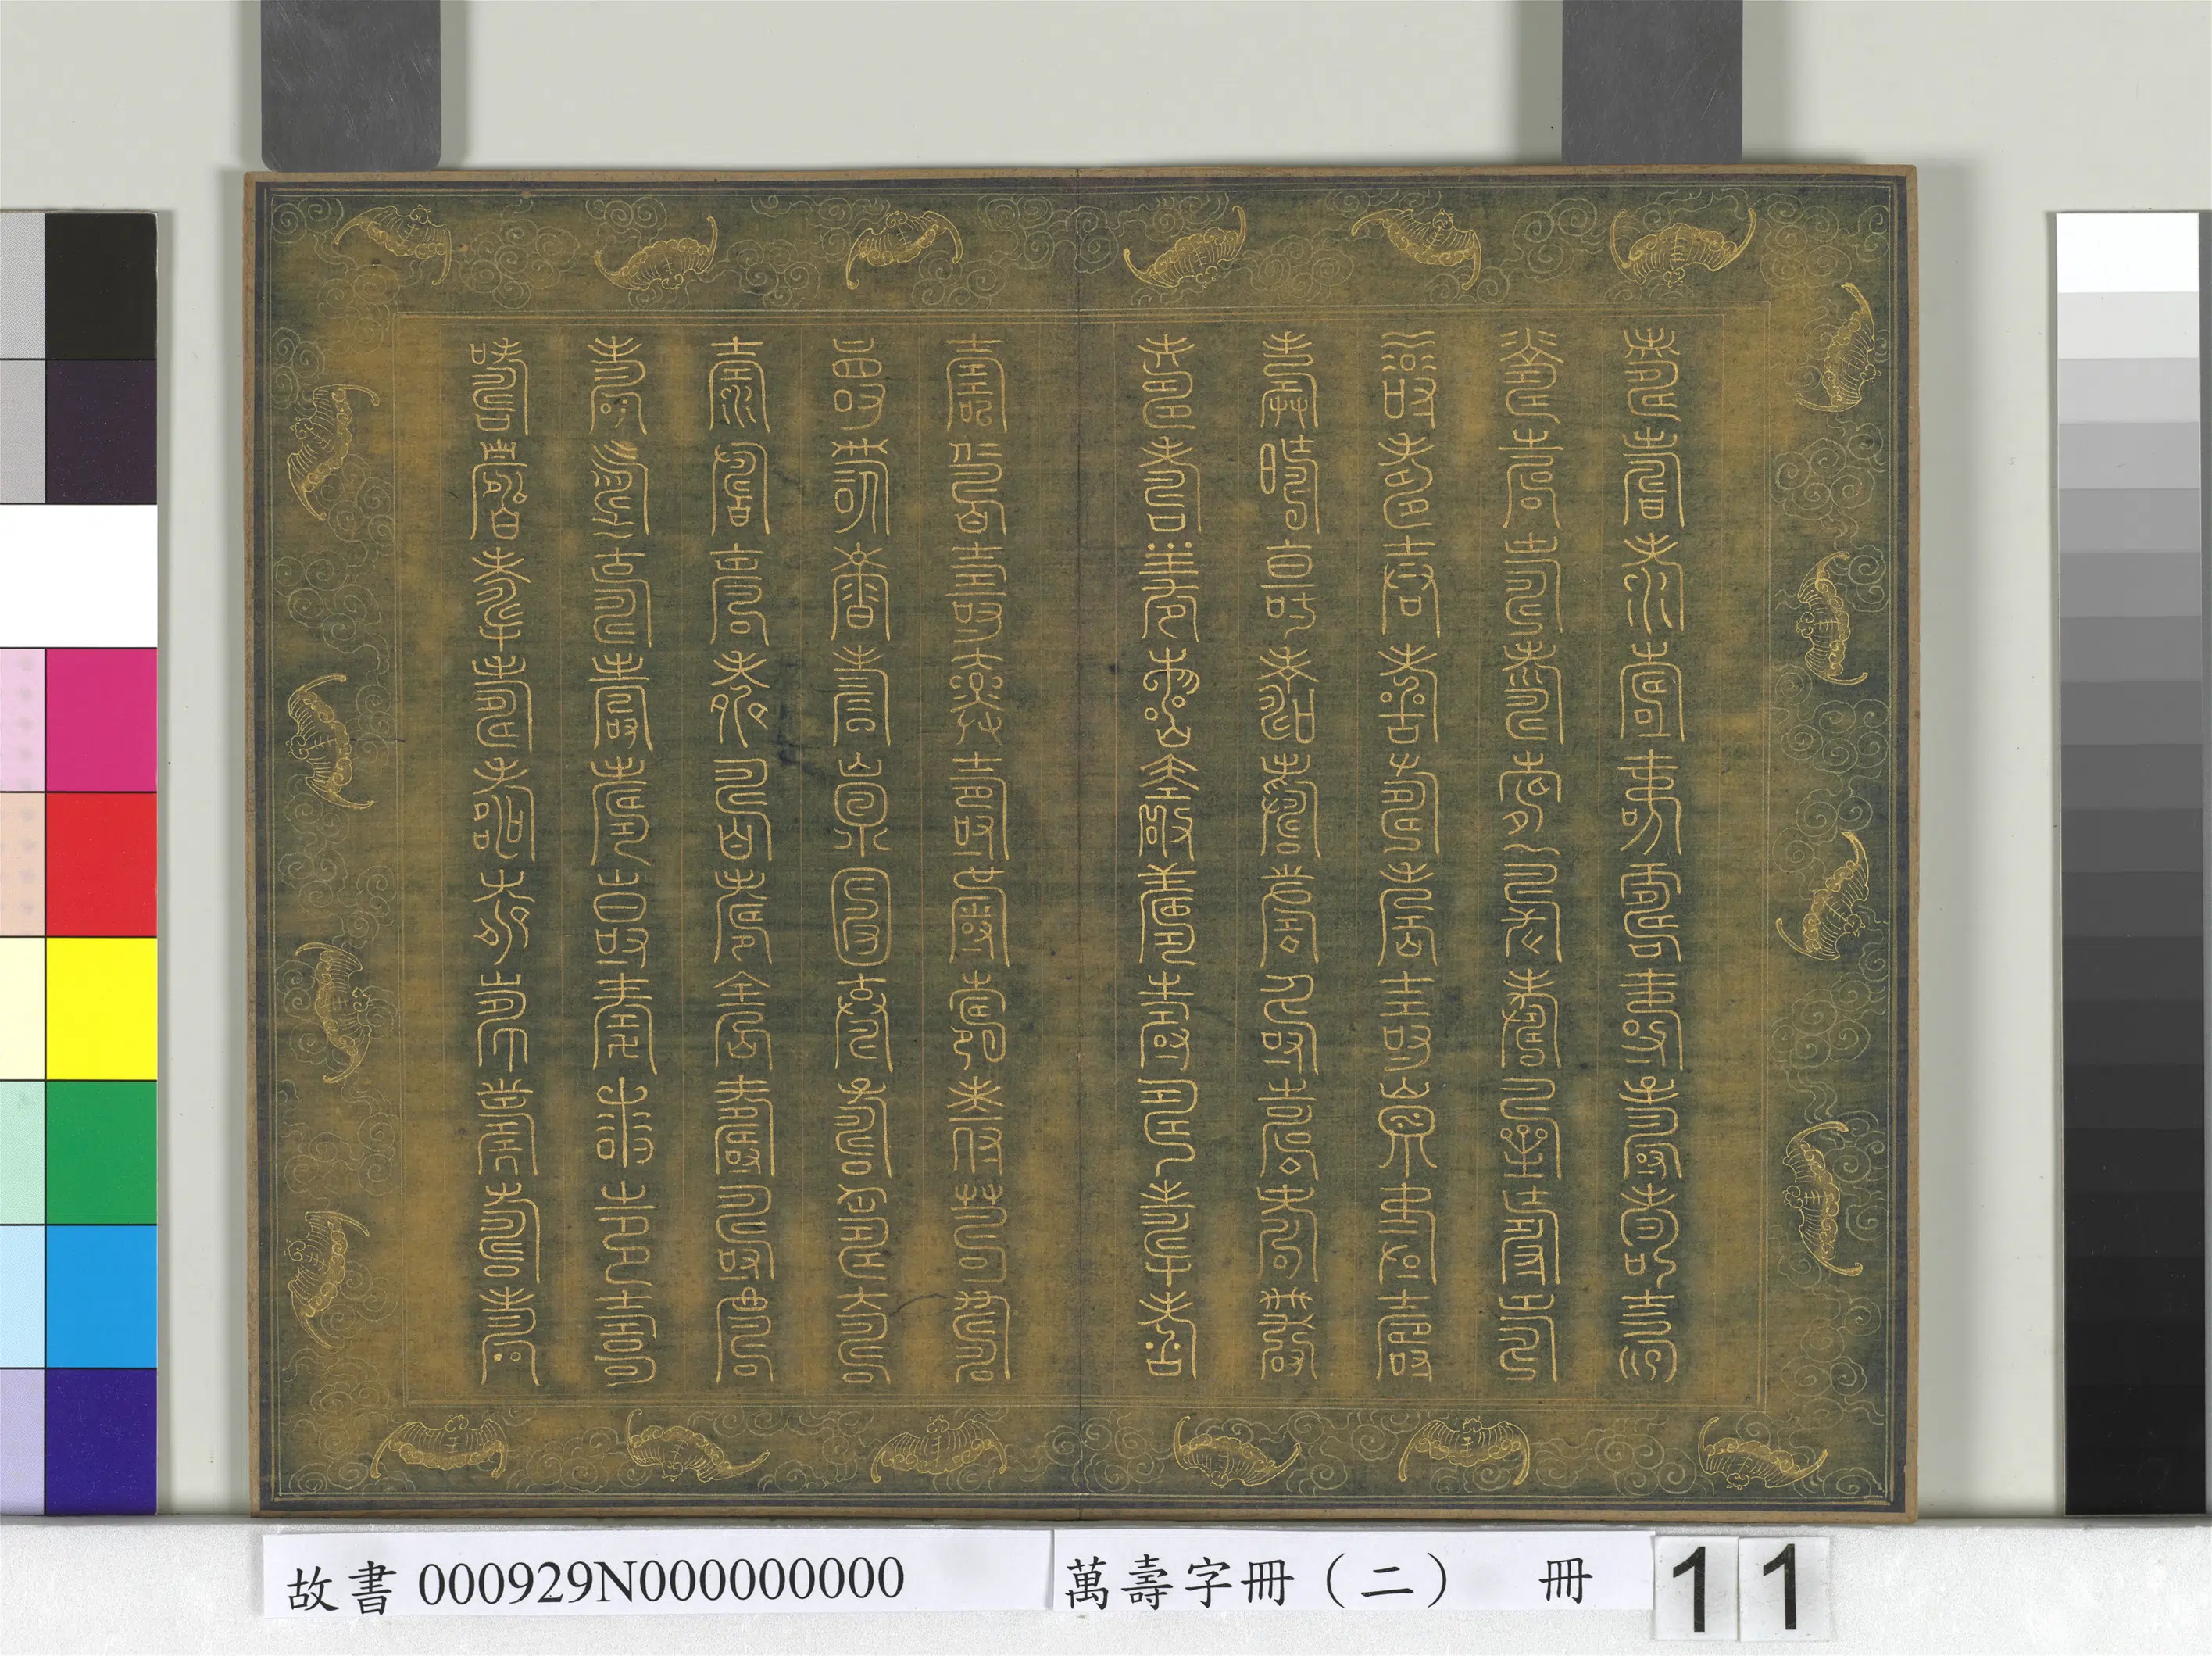 壽壽壽壽壽壽壽壽壽壽
壽壽壽壽壽壽壽壽壽壽
壽壽壽壽壽壽壽壽壽壽
壽壽壽壽壽壽壽壽壽壽
壽壽壽壽壽壽壽壽壽壽
壽壽壽壽壽壽壽壽壽壽
壽壽壽壽壽壽壽壽壽壽
壽壽壽壽壽壽壽壽壽壽
壽壽壽壽壽壽壽壽壽壽
壽壽壽壽壽壽壽壽壽壽
故書 000929N000000000 萬壽字冊（二） 冊 11